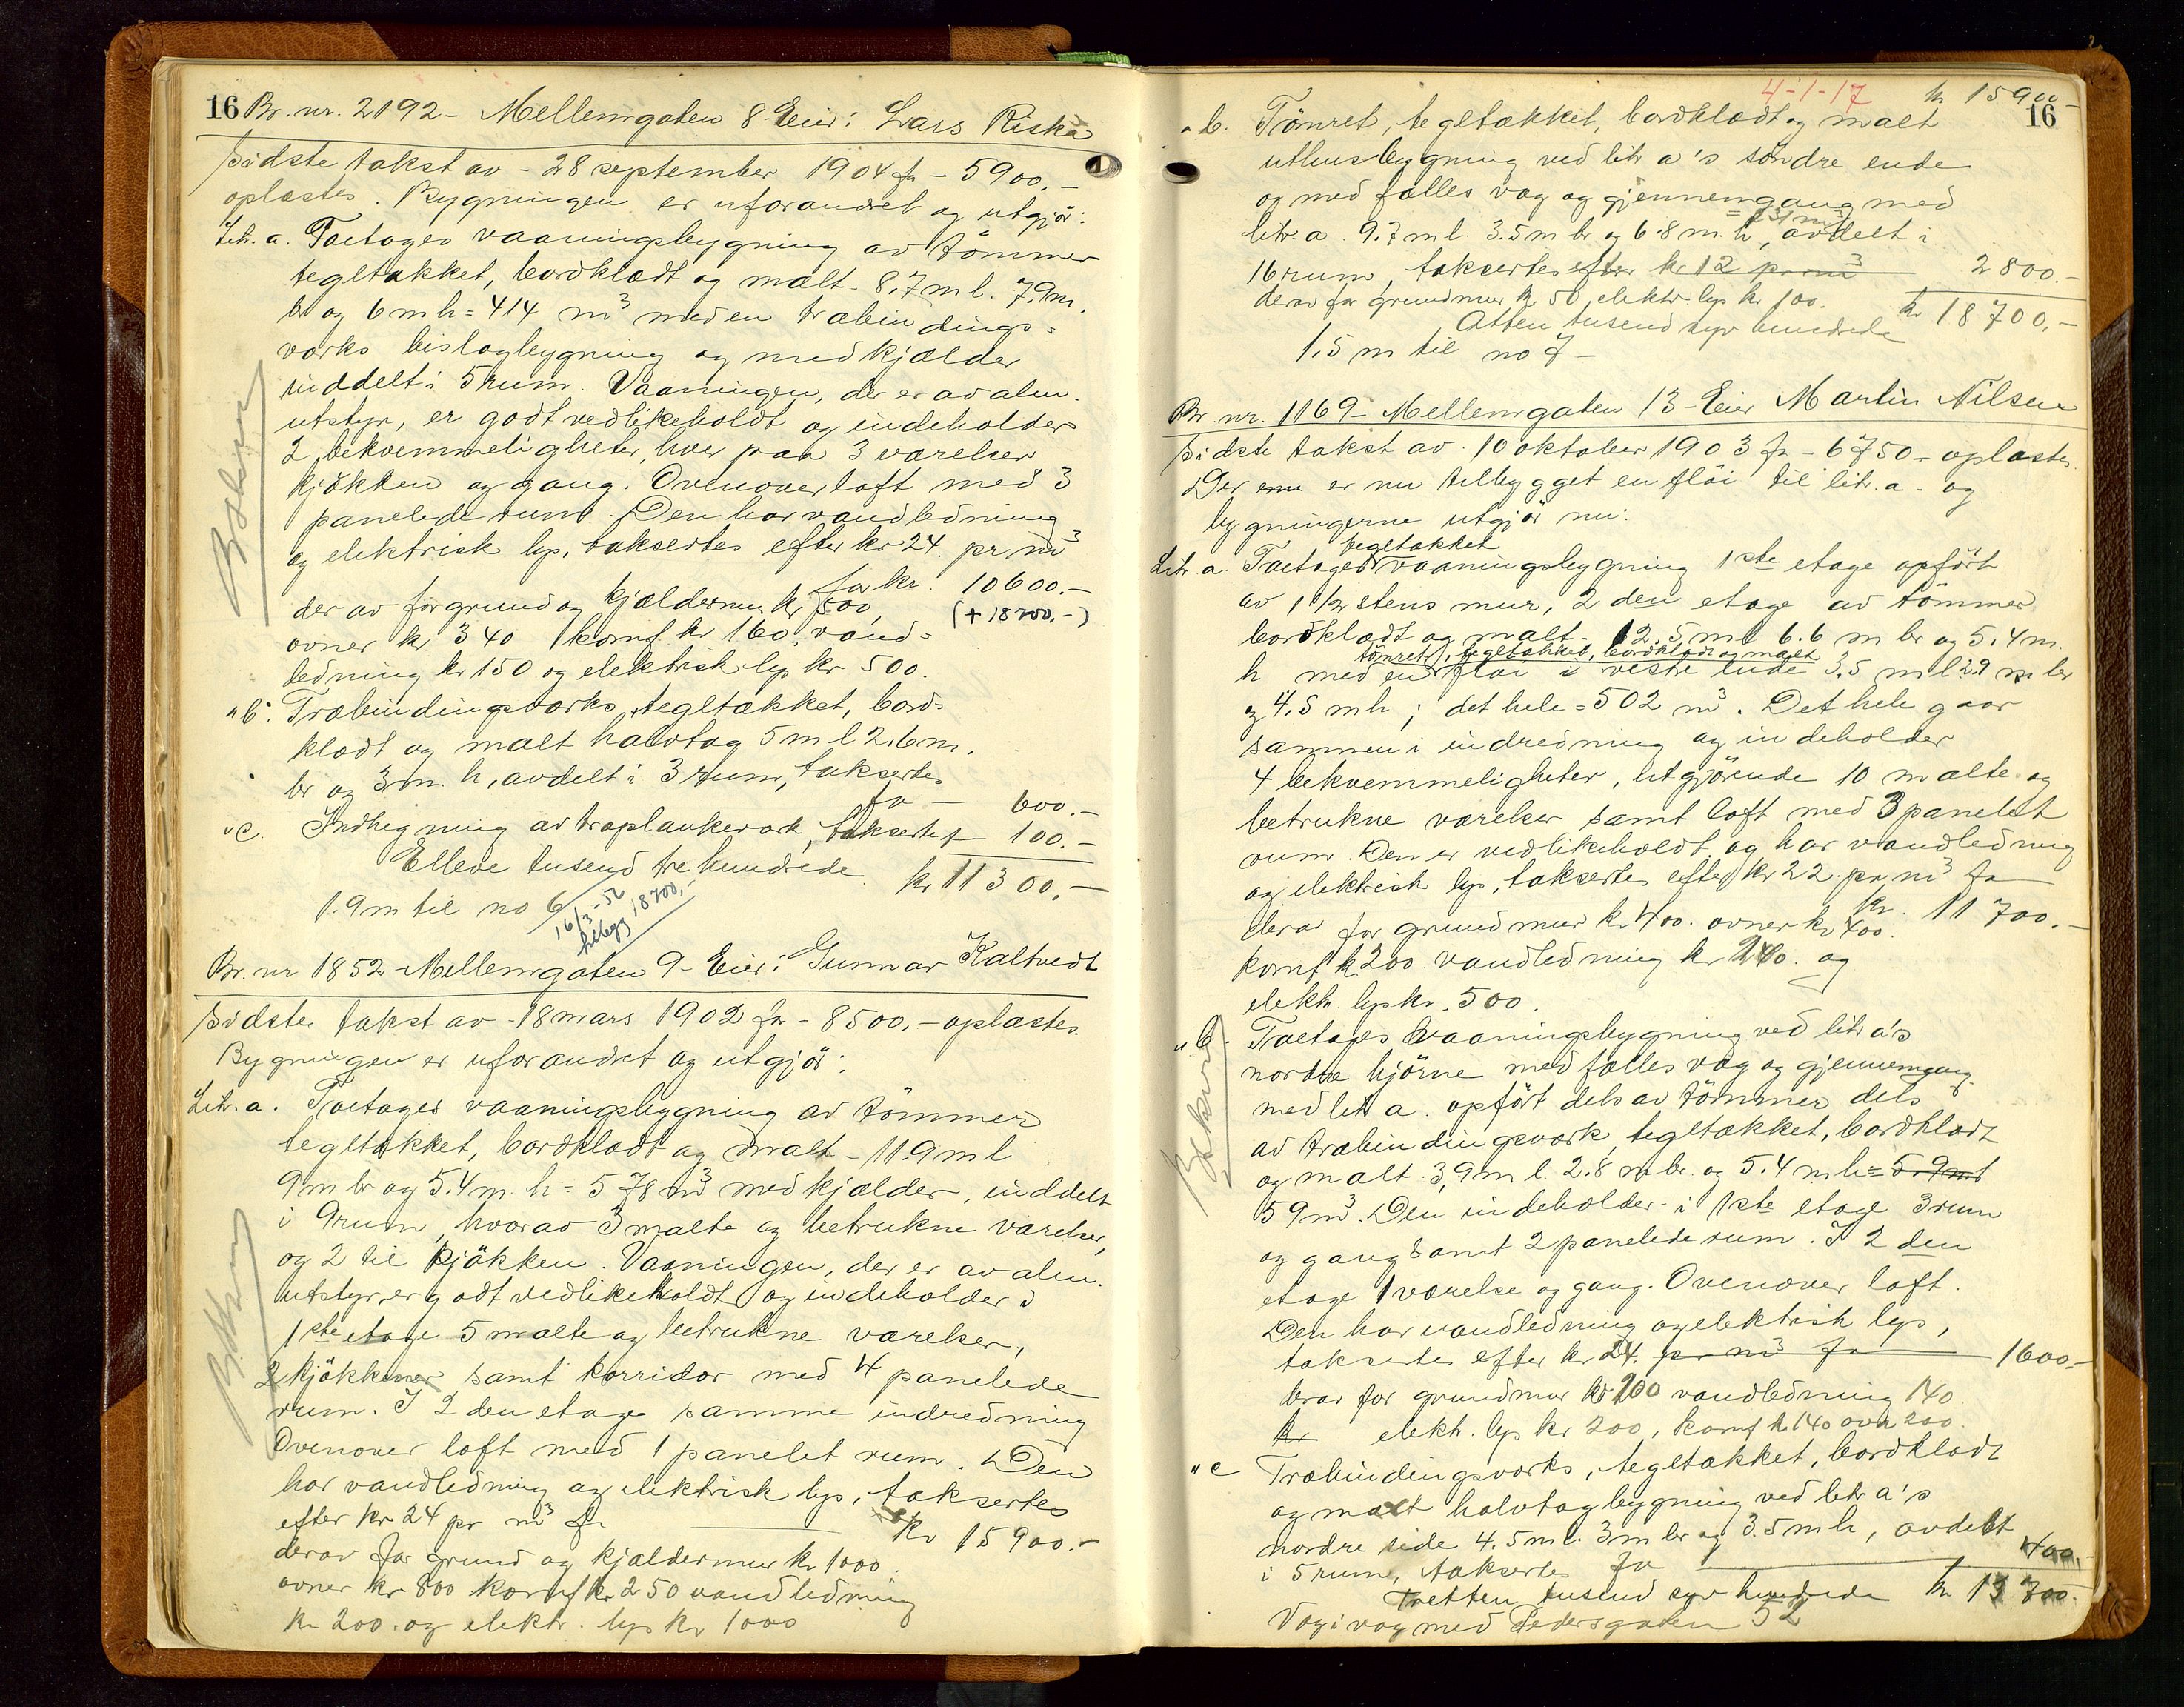 16 Br. nr. 2192 - Mellemgaten 8 Eier: Lars Riska
Sidste takst av - 28 september 1904 fr - 5900.-
oplæstes. Bygningen er uforandret og utgjör:
Litr. a. Toetages vaaningsbygning av tömmer
tegltækket, bordklædt og malt - 8,7 m l. 7,9 m.
br og 6 m h = 414 m³ med en træbindings-
værks bislagbygning og med kjælder
inddelt i 5 rum. Vaaningen, der er av alm.
utstyr, er godt vedlikeholdt og indeholder
2 bekvemmeligheter, hver paa 3 værelser
kjökken og gang. Ovenover loft med 3
panelede rum. Den har vandledning
og elektrisk lys, taksertes efter kr 24. pr m³
for kr. 10600.-
der av for grund og kjældermur kr 500,
(+ 18200.-)
ovner kr 340 komf. kr 160, vand-
ledning kr 150 og elektrisk lys kr 500.
" b. Træbindingsværks, tegltækket, bord-
klædt og malt halvtag 5 m l 2.6 m.
br og 3 m. h, avdelt i 3 rum, taksertes
for - 600.-
" c. Indhegning av træplankeværk, taksertes f 100.-
Elleve tusend tre hundrede kr 11300.-
1.9 m til no 6
16/3-56
tilbygg 18200.-
Br. nr 1852 - Mellemgaten 9 - Eier: Gunnar Kaltvedt
Sidste takst av - 18 mars 1902 fr - 8500.- oplæstes.
Bygningen er uforandret og utgjör:
Litr. a. Toetages vaaningsbygning av tömmer
tegltækket, bordklædt og malt - 11.9 m l
9 m br og 5.4 m. h = 578 m³ med kjælder, inddelt
i 9 rum, hvorav 3 malte og betrukne værelser,
og 2 til kjökken. Vaaningen, der er av alm.
utstyr, er godt vedlikeholdt og indeholder i
1ste etage 5 malte og betrukne værelser,
2 kjökkener samt korridor med 4 panelede
rum. I 2 den etage samme indredning
Ovenover loft med 1 panelet rum. Den
har vandledning og elektrisk lys, taksertes
efter kr 24 pr m³ fr kr 15900.-
derav for grund og kjældermur kr 1000.
ovner kr 800 komf kr 250 vandledning
kr 200. og elektr. lys kr 1000
4-1-17 kr 15900-
16
" b. Tömret, tegltækket, bordklædt og malt
uthusbygning ved litr a's söndre ende
og med fælles væg og gjennemgang med
= 231 m³
litr. a 9.7 m l. 3.5 m br og 6.8 m. h, avdelt i
16 rum, taksertes efter kr 12 pr m³ 2800.-
derav for grundmur kr 50, elektr. lys kr 100.
kr 18700.-
Atten tusend syv hundrede
1.5 m til no 7 -
Br. nr. 1169 - Mellemgaten 13 - Eier Martin Nilsen
Sidste takst av 10 oktober 1903 fr - 6750 - oplæstes.
Der er nu tilbygget en flöi til litr. a. og
bygningerne utgjör nu:
tegltækket
Litr. a. Toetages vaaningsbygning 1ste etage opfört
av 1 1/2 stens mur, 2 den etage av tömmer
bordklædt og malt - 12.5 m l 6.6 m br og 5.4 m.
tömret, tegltækket, bordklædt og malt
h med en flöi i vestre ende 3.5 m l 2.9 m br
og 4.5 m h; det hele = 502 m³. Det hele gaar
sammen i indredning og indeholder
4 bekvemmeligheter, utgjörende 10 malte og
betrukne værelser samt loft med 3 panelet
rum. Den er vedlikeholdt og har vandledning
og elektrisk lys, taksertes efter kr 22 pr m³ fr
kr. 11700.-
derav for grundmur kr 400. ovner kr 400.
komf. kr 200. vandledning kr 240. og
elektr. lys kr. 500.
" b. Toetages vaaningsbygning ved litr a's
nordre hjörne med fælles væg og gjennemgang
med litr a. opfört dels av tömmer dels
av træbindingsværk, tegltækket, bordklædt
og malt. 3,9 m l. 2.8 m br. og 5.4 m h = 5.9 m³
59 m³. Den indeholder i 1ste etage 3 rum
og gang samt 2 panelede rum. I 2 den
etage 1 værelse og gang. Ovenover loft.
Den har vandledning og elektrisk lys,
taksertes efter kr 24. pr m³ fr 1600.-
derav for grundmur kr 100 vandledning 140
kr elektr. lys kr 200, komf kr 140 ovn 200.
" c Træbindingsværks, tegltækket, bordklædt
og malt halvtagbygning ved litr a's
nordre side 4.5 m l. 3 m br og 3.5 m h, avdelt
i 5 rum, taksertes for 400.-
Tretten tusend syv hundrede kr 13700.-
Væg i væg med Pedersgaten 52